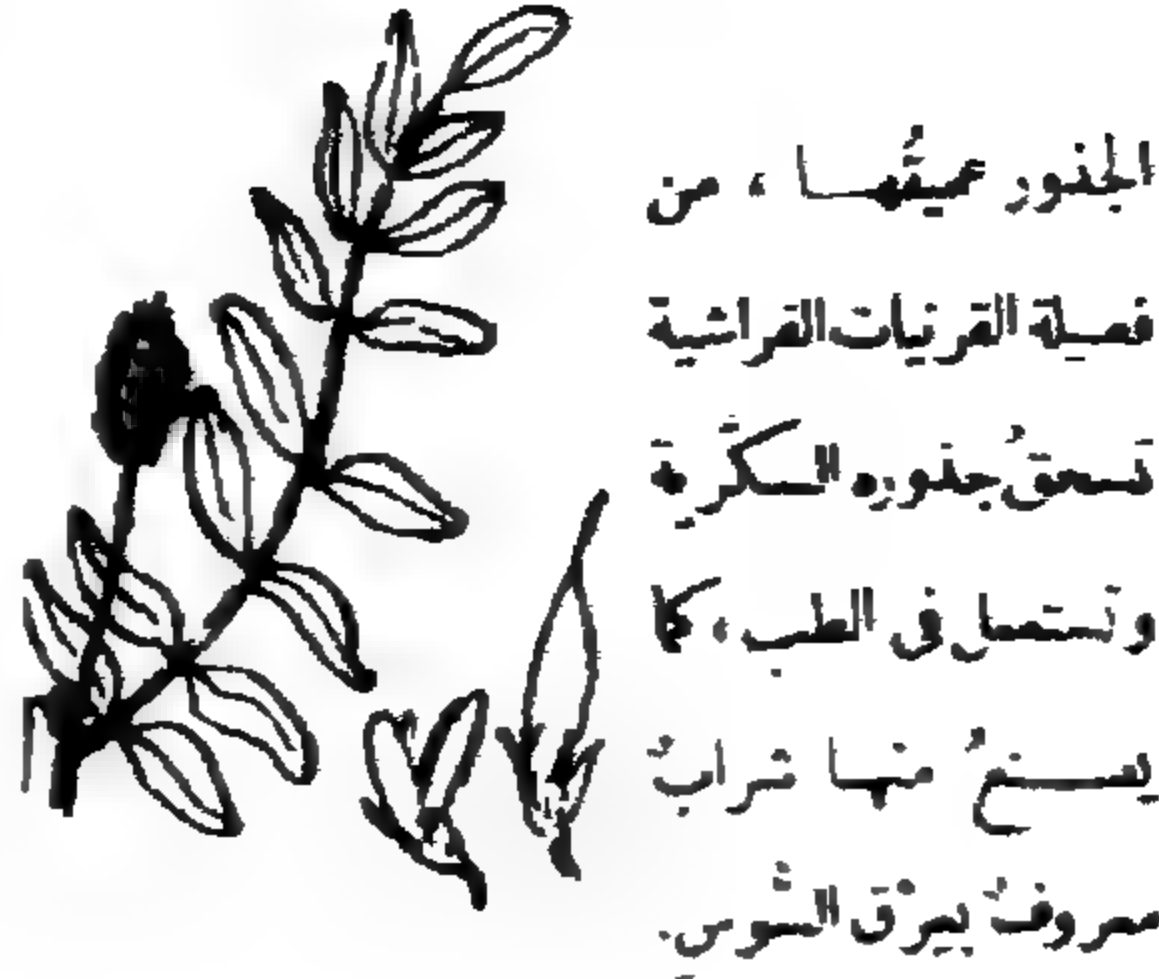 الجذور عميقُهـا ، من
فصيلة القرنيات الفراشية
تسحقُ جذوره السكّرية
وتستعمل فى الطب ، كما
يصنعُ منها شرابٌ
معروفٌ بعِرْق السُّوس .